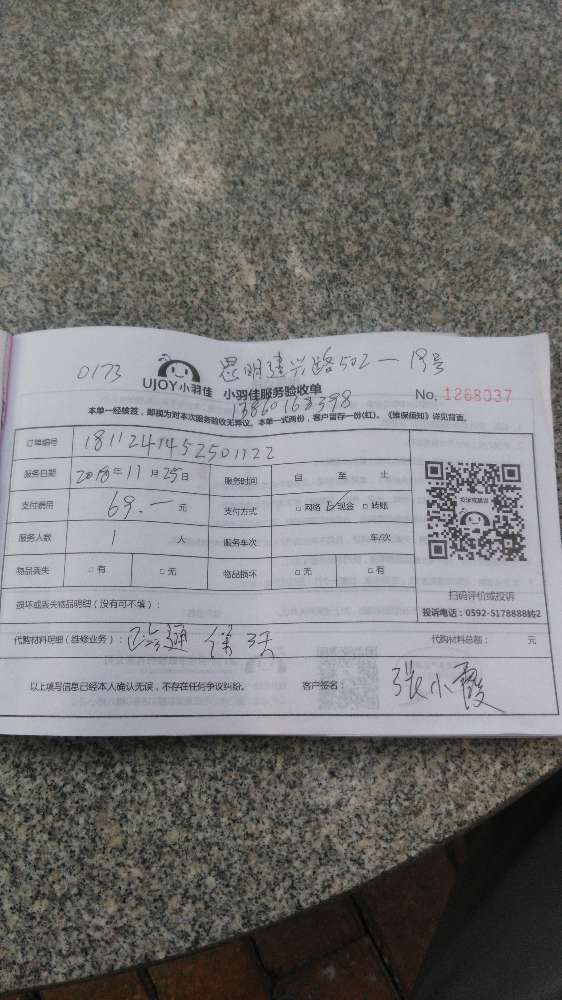 0173 思明建兴路502一19号
UJOY小羽佳 小羽佳服务验收单
No. 1268037
本单一经核签，即视为对本次服务验收无异议。本单一式两份，客户留存一份(红)。《维保须知》详见背面。
订单编号 1811241452501122
服务日期 2018年11月25日 服务时间 自 至 止
支付费用 69.一 元 支付方式 □网络 ☑现金 □转账
服务人数 1 人 服务车次 车/次
物品丢失 □有 □无 物品损坏 □无 □有
扫码评价或投诉
损坏或丢失物品明细（没有可不填）：
投诉电话：0592-5178888转2
代购材料明细（维修业务）： 代购材料总额： 元
以上填写信息已经本人确认无误，不存在任何争议纠纷。 客户签名： 张小霞